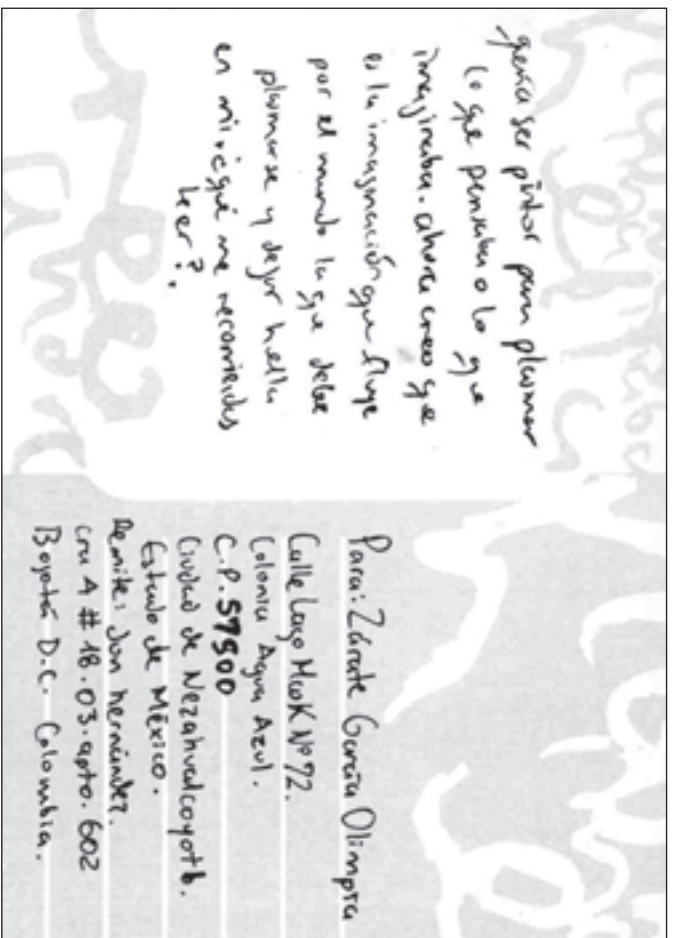 quería ser pintor para plasmar
lo que pensaba o lo que
imaginaba. ahora creo que
es la imaginación que fluye
por el mundo la que debe
plasmarse y dejar huella
en mi. ¿qué me recomiendas
leer?.
Para: Zárate García Olimpia
Calle Lago Nº 72.
Colonia Agua Azul.
C.P. 57500
Ciudad de Nezahualcoyotl.
Estado de México.
Remite: Jon hernández.
cra 4 # 18-03-apto. 602
Bogotá D.C. - Colombia.